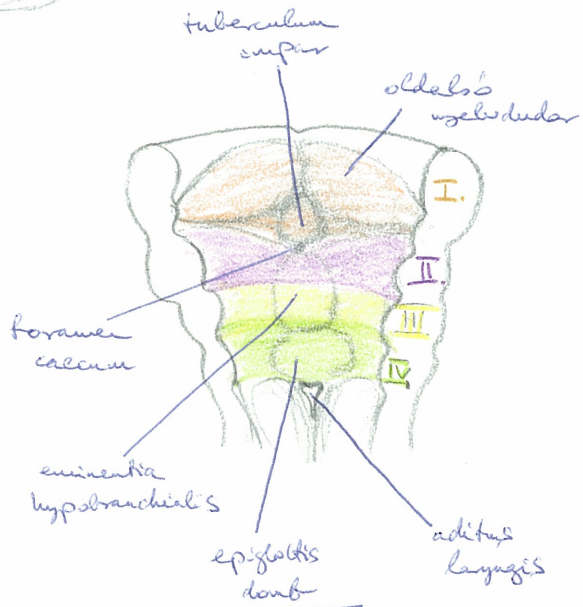 tuberculum
impar
oldalsó
nyelvdudor
I.
II.
III
IV
foramen
caecum
eminentia
hypobranchialis
epiglottis
domb
aditus
laryngis